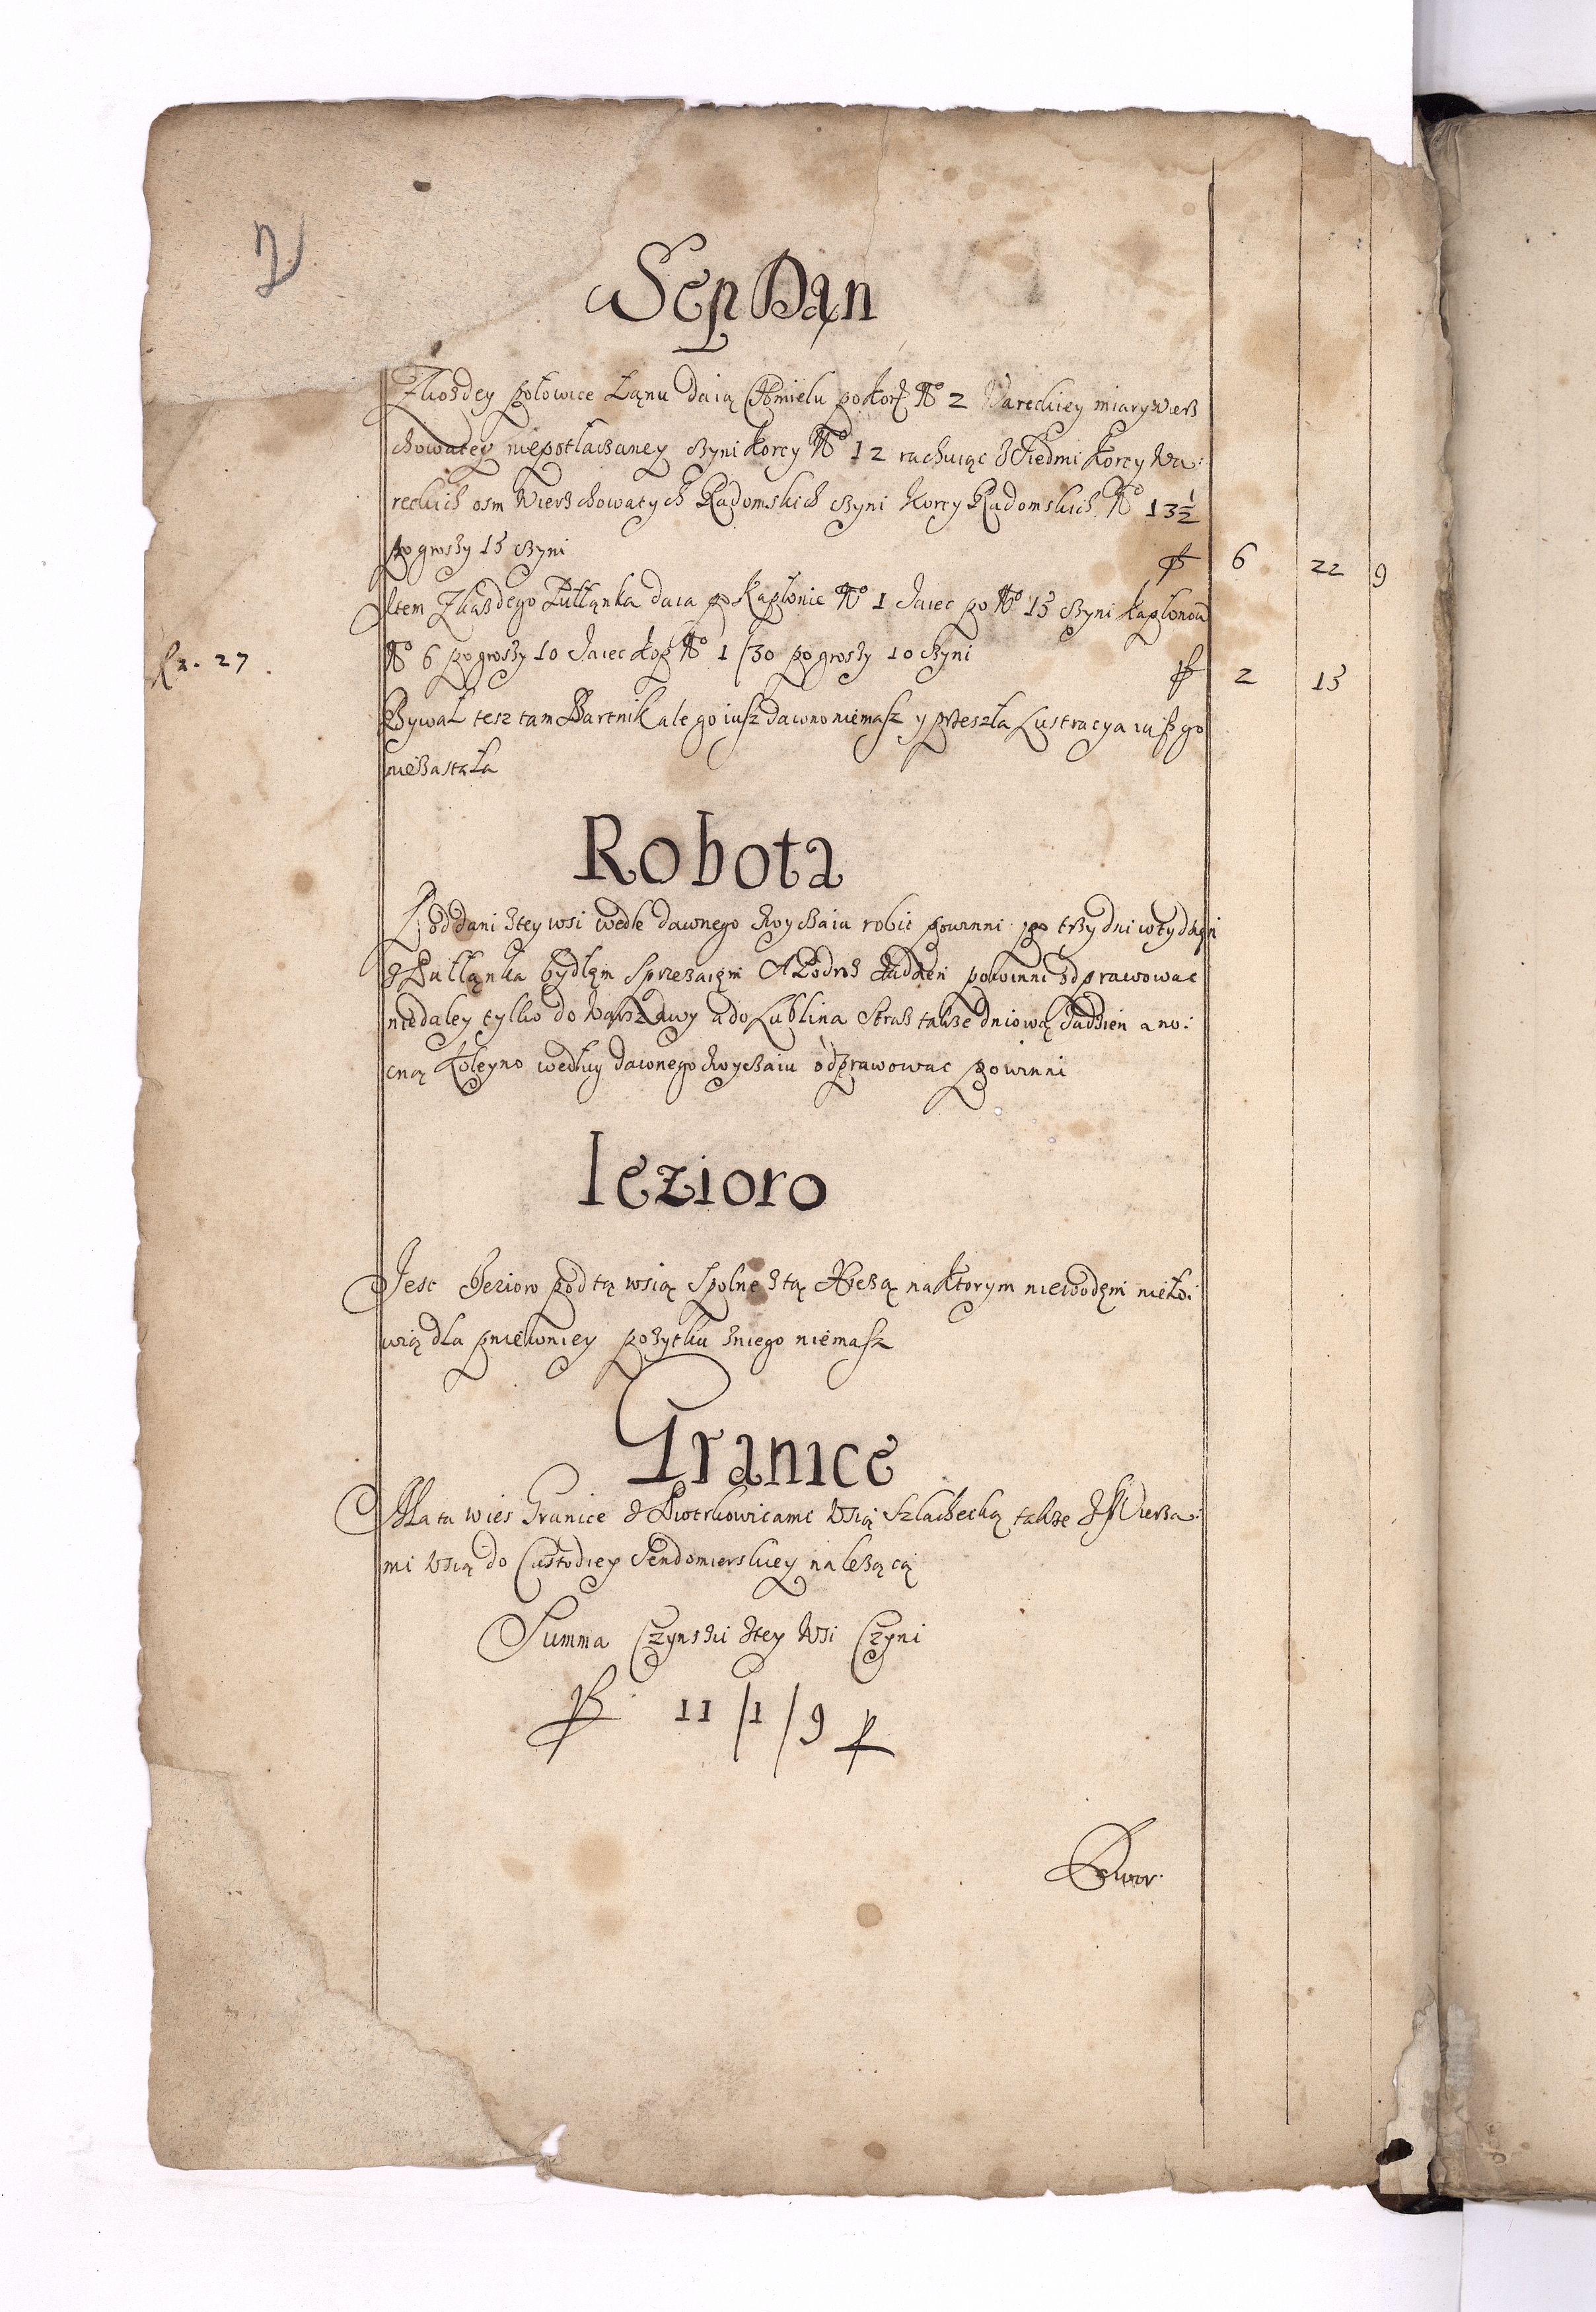 2
Sep Dan
Zkozdey połowice Łanu daią Chmielu po Korcy No 2 Wareckiey miary wierz
chowatey niepotlaczaney czyni korcy No 12 rachuiąc z Siedmi Korcy Wa:
reckich osm Wierzchowatych Radomskich czyni Korcy Radomskich No 13 1/2
po groszy 15 czyni f 6 22 9
Item Zkazdego Pułłanka daia po Kapłonie No 1 Jaiec po No 15 czyni kapłonow
Kr. 27.
No 6 po groszy 10 Jaiec kop No 1/30 po groszy 10 czyni f 2 15
Bywał tesz tam Bartnik ale go iusz dawno niemasz y przeszła Lustracya iusz go
niezastała
Robota
Poddani ztey wsi wedle dawnego zwyczaiu robic powinni po trzy dni w tydzien
z Pułłanka bydłem sprzezaięm A Podroz powinni odprawowac
niedaley tylko do Warszawy a do Lublina Straz takze dniową a no:
cną koleyno według dawnego zwyczaiu odprawowac powinni
Iezioro
Jest Iezioro pod tą wsią Spolne ztą na ktorym niewodęm nieło:
wią dla pniewniey pozytku zniego niemasz
Granice
Ma ta wies Granice z Piotrkowicami Wsią Szlachecką takze z
mi Wsią do Custodiey Sendomierskiey nalezącą
Summa Czynszu ztey Wsi Czyni
f 11/1/9
Dwor.